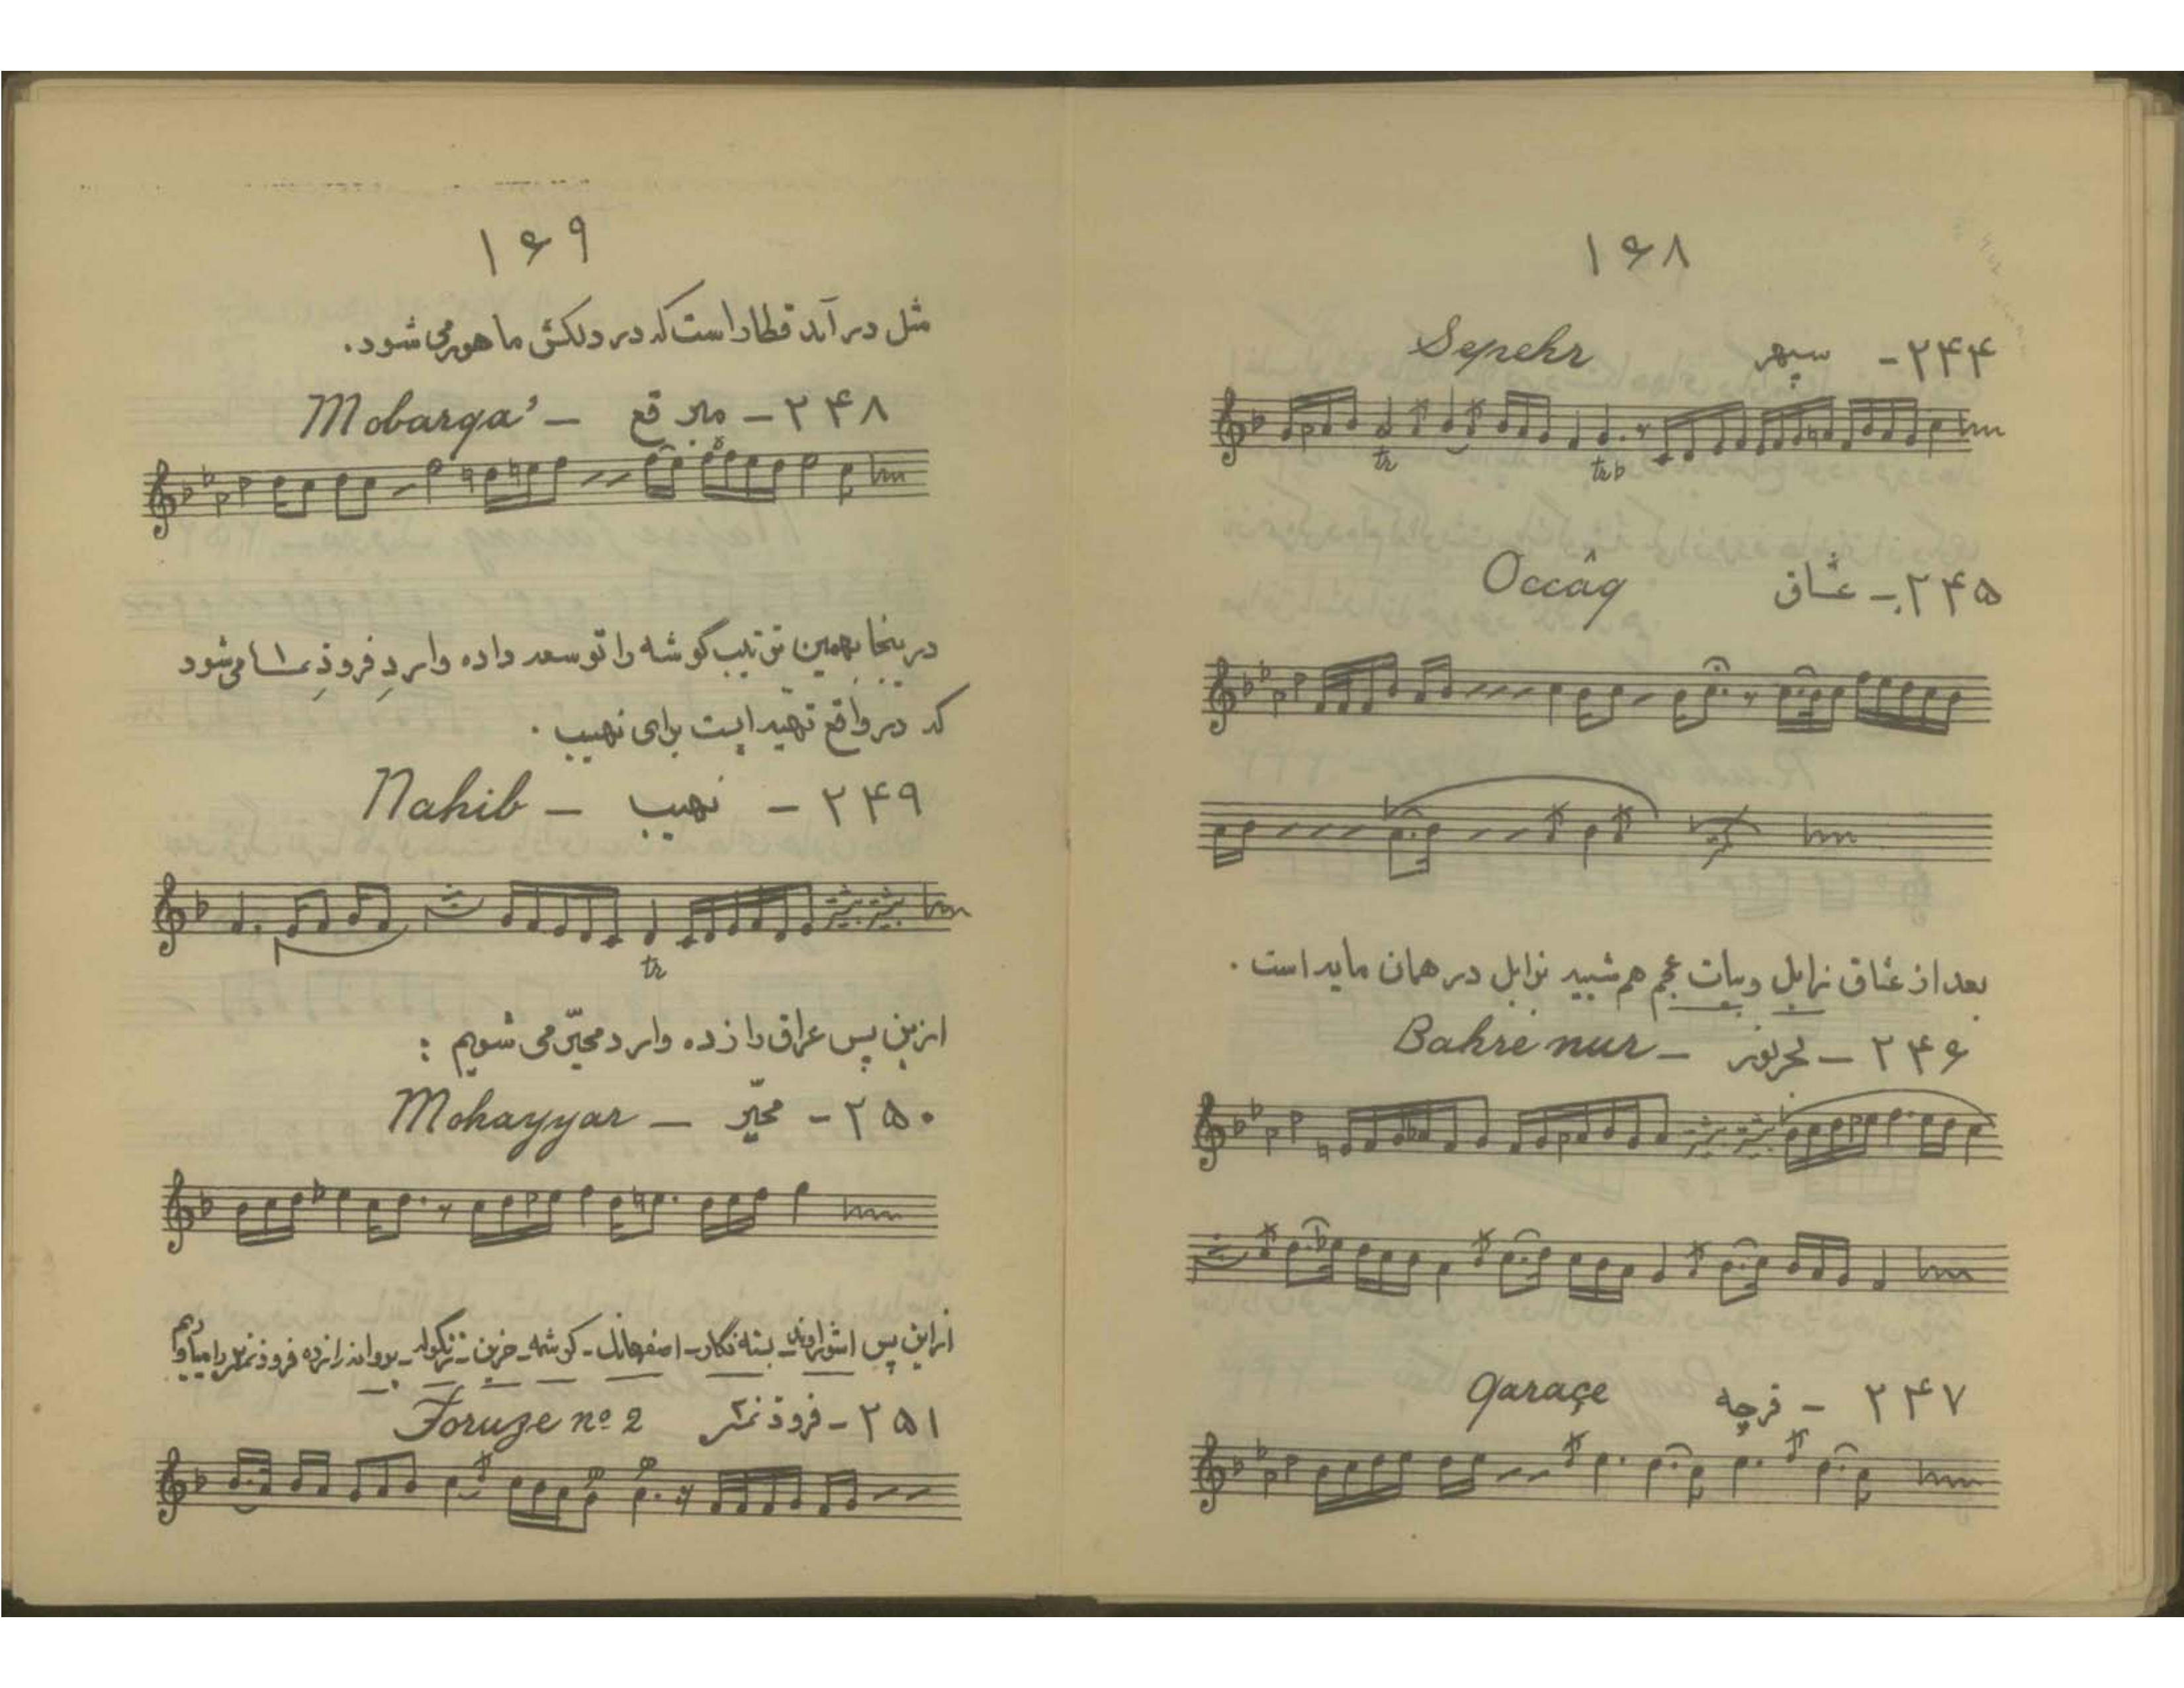 ۱۶۸
۲۴۴- سپهر Sepehr
tr trb
۲۴۵- عشاق Occâq
بعد از عشاق زابل و بیات عجم هم شبیه زابل در همان مایه است .
۲۴۶ - بحرنور - Bahre nur
۲۴۷ - قرچه Qaraçe
۱۶۹
مثل درآمد قطار است که در دلکش ماهور می شود .
۲۴۸ - مبرقع - Mobarqa’
در ینجا بهمین ترتیب گوشه را توسعه داده وارد فرود نمره ۱ می شود
که در واقع تهیه ایست برای نهیب .
۲۴۹ - نهیب - Nahib
tr
ازین پس عراق را زده وارد محیّر می شویم :
۲۵۰ - محیّر - Mohayyar
از این پس آشورآوند - بسته نگار - اصفهانک - کرشمه - حزین - زنگوله - را زده فرود نمره ۲ را
۲۵۱ - فرود نمره ۲ Foruze nº 2